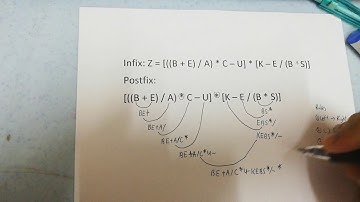 Infix: Z = [((B + E) / A) * C – U] * [K – E / (B * S)]
Postfix:
[((B + E) / A) * C – U] * [K – E / (B * S)]
BE+ BS*
BE+A/ EBS*/
BE+A/C* KEBS*/-
BE+A/C*U-
BE+A/C*U-KEBS*/-*